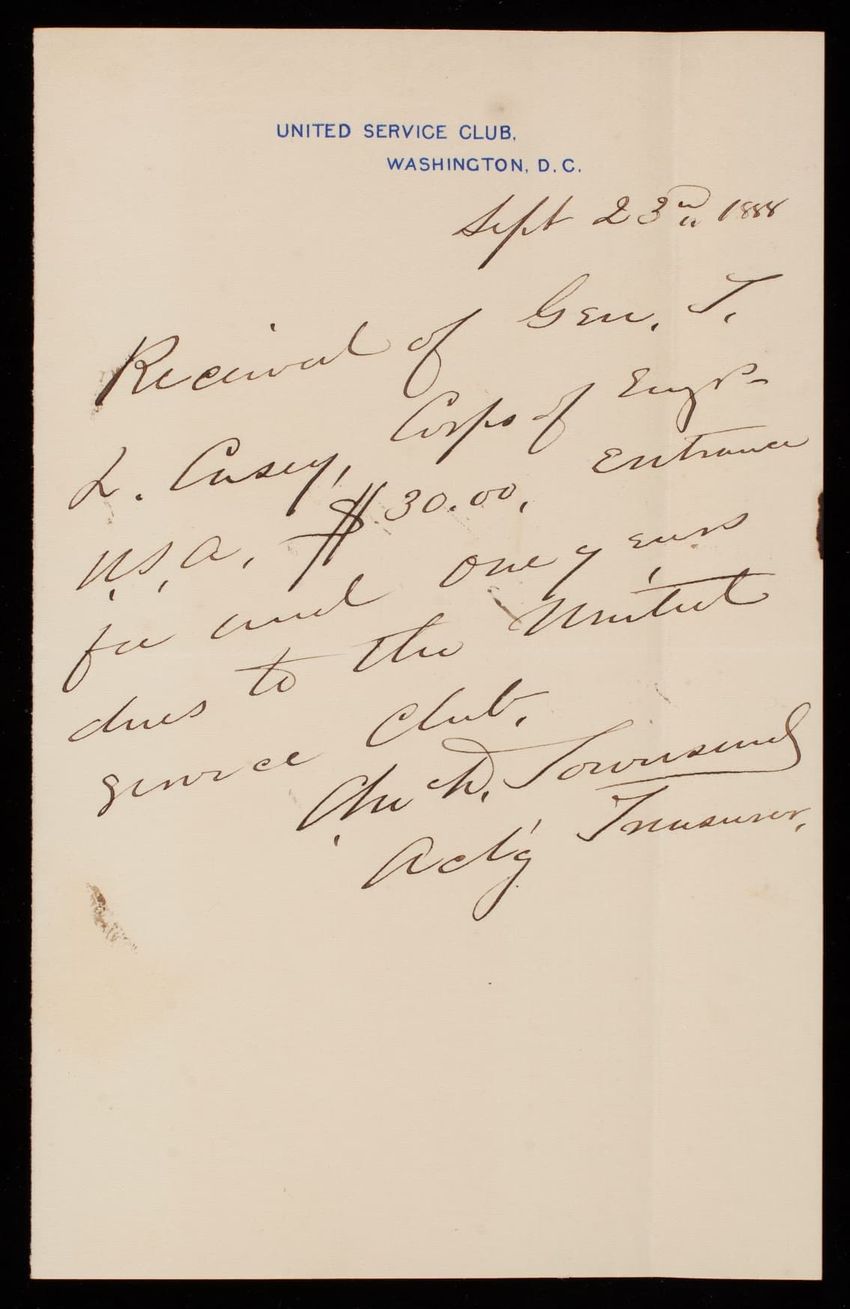 UNITED SERVICE CLUB,
WASHINGTON, D. C.
Sept 23rd 1888
Received of Gen. T.
L. Casey, Corps of Engrs
U.S.A. $30.00, Entrance
fee and one years
dues to the United
Service Club.
Townsend
Act'g Treasurer.